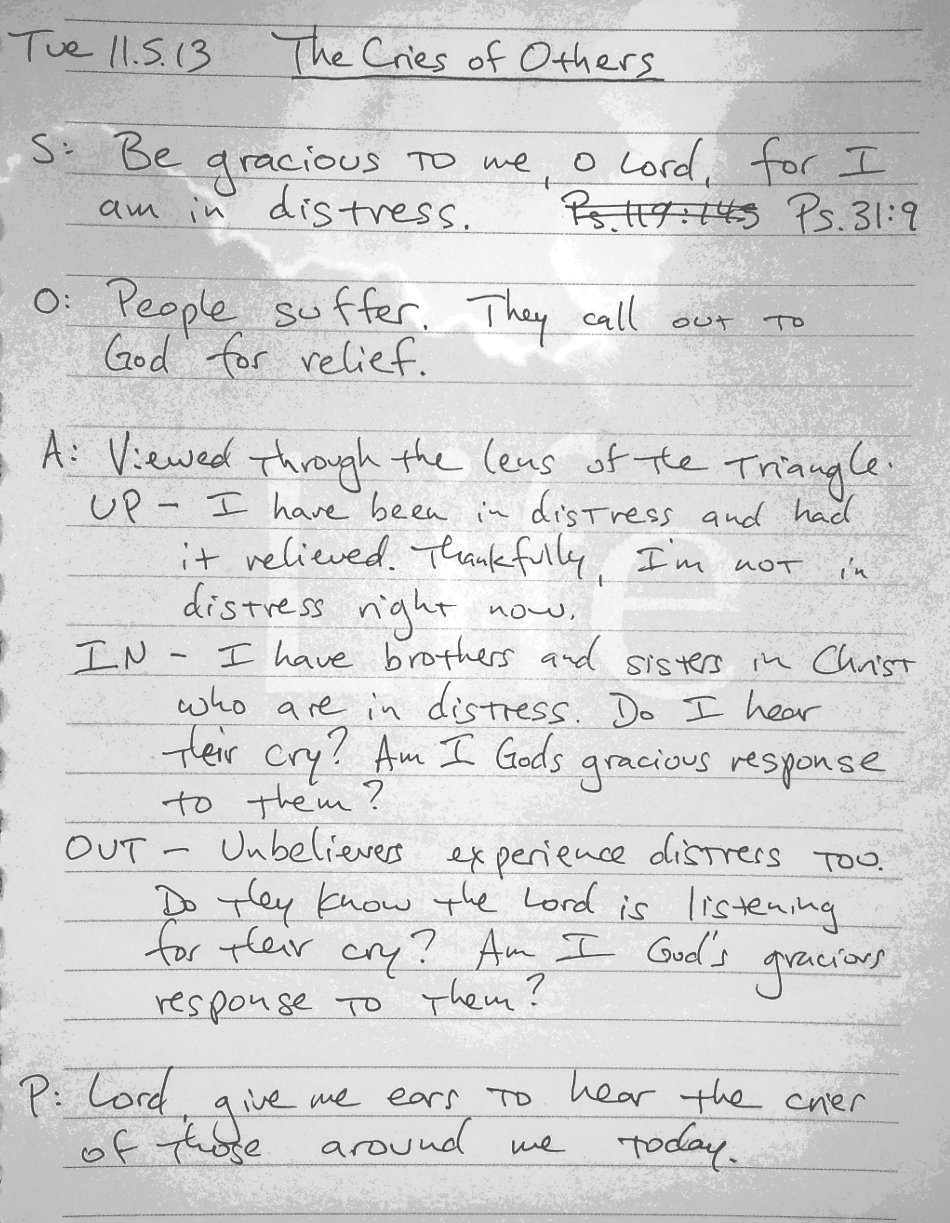 Tue 11.5.13 The Cries of Others
S: Be gracious to me, O Lord, for I
am in distress. Ps. 119:145 Ps. 31:9
O: People suffer. They call out to
God for relief.
A: Viewed through the lens of the Triangle.
UP - I have been in distress and had
it relieved. Thankfully, I'm not in
distress right now.
IN - I have brothers and sisters in Christ
who are in distress. Do I hear
their cry? Am I Gods gracious response
to them?
OUT - Unbelievers experience distress too.
Do they know the Lord is listening
for their cry? Am I God's gracious
response to them?
P: Lord, give me ears to hear the cries
of those around me today.
life